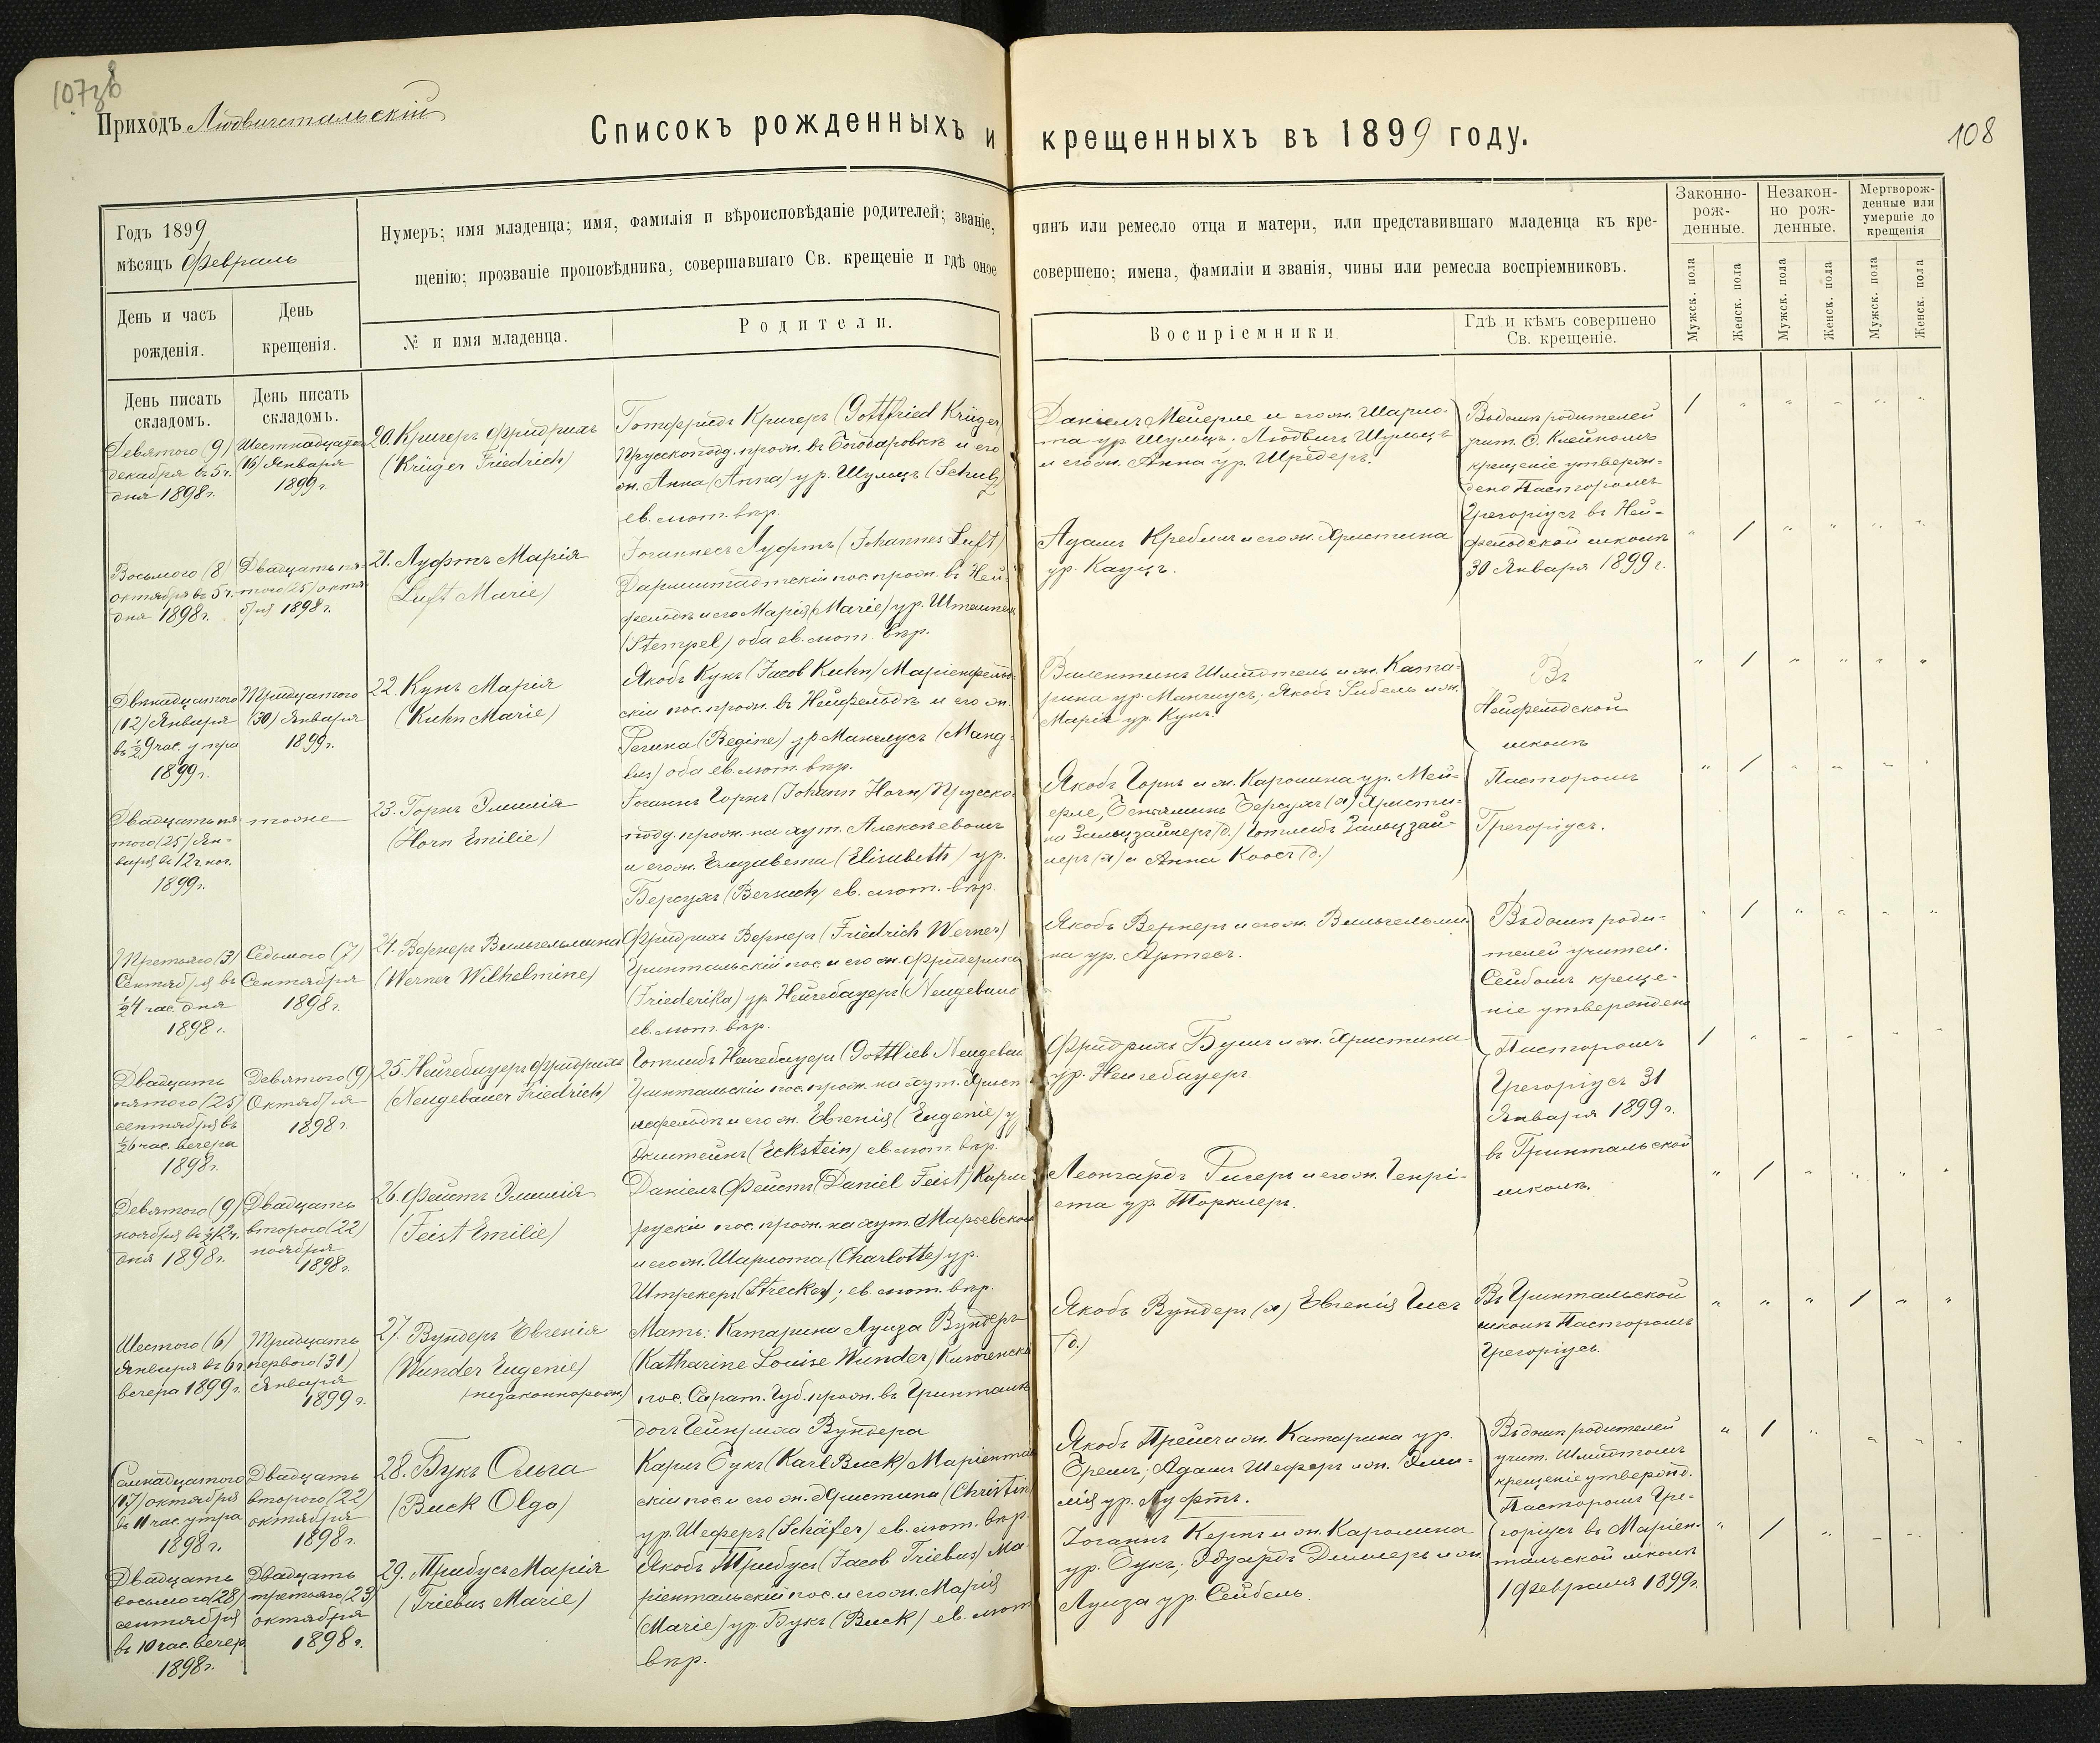 107 зв
Приходъ Людвигстальскій
Списокъ рожденныхъ и крещенныхъ въ 1899 году.
108
Годъ 1899
мѣсяцъ Февраль
День и часъ
рожденія.
День
крещенія.
Нумеръ; имя младенца; имя, фамилія и вѣроисповѣданіе родителей; званіе, чинъ или ремесло отца и матери, или представившаго младенца къ кре-
щенію; прозваніе проповѣдника, совершавшаго Св. крещеніе и гдѣ оное совершено; имена, фамиліи и званія, чины или ремесла воспріемниковъ.
№ и имя младенца.
Родители.
Воспріемники
Гдѣ и кѣмъ совершено
Св. крещеніе.
Законно-
рож-
денные.
Незакон-
но рож-
денные.
Мертворож-
денные или
умершіе до
крещенія
Мужск. пола
Женск. пола
Мужск. пола
Женск. пола
Мужск. пола
Женск. пола
День писать
складомъ.
День писать
складомъ.
Девятого (9)
декабря въ 5 ч.
дня 1898 г.
Шестнадцатаго
(16) Января
1899 г.
20. Кригеръ Фридрихъ
(Krüger Friedrich)
Готфридъ Кригеръ (Gottfried Krüger)
Прусскоподд. прож. въ Богодаровкѣ и его
ж. Анна (Anna) ур. Шульцъ (Schulz)
ев. лют. вѣр.
Даніелъ Мейерле и его ж. Шарло-
та ур. Шульцъ. Людвигъ Шульцъ
и его ж. Анна ур. Шредеръ.
Въ домѣ родителей
учит. О. Клейномъ
крещеніе утверж-
дено Пасторомъ
Грегоріусъ въ Ней-
фельдской школѣ
30 Января 1899 г.
Восьмого (8)
октября въ 5 ч.
дня 1898 г.
Двадцать пя-
того (25) октя-
бря 1898 г.
21. Луфтъ Марія
(Luft Marie)
Іоганнесъ Луфтъ (Johannes Luft)
Дармштадтскій пос. прож. въ Ней-
фельдѣ и его Марія (Marie) ур. Штемпель
(Stempel) оба ев. лют. вѣр.
Адамъ Креблингъ и его ж. Христина
ур. Кауцъ.
Двѣнадцатого
(12) Января
въ ½ 9 час. утра
1899 г.
Тридцатого
(30) Января
1899 г.
22. Кунъ Марія
(Kuhn Marie)
Якобъ Кунъ (Jacob Kuhn) Маріенфельд-
скій пос. прож. въ Нейфельдѣ и его ж.
Регина (Regine) ур. Мангіусъ (Mang-
ius) оба ев. лют. вѣр.
Валентинъ Шмидтель и ж. Ката-
рина ур. Мангіусъ; Якобъ Зибель и ж.
Марія ур. Кунъ.
Въ
Нейфельдской
школѣ
Пасторомъ
Грегоріусъ.
Двадцать пя-
того (25) Ян-
варя въ 12 ч. ноч.
1899 г.
тоже
23. Горнъ Эмилія
(Horn Emilie)
Іоганнъ Горнъ (Johann Horn) Прусско-
подд. прож. на хут. Алексѣевомъ
и его ж. Елизавета (Elisabeth) ур.
Берсухъ (Bersuch) ев. лют. вѣр.
Якобъ Горнъ и ж. Каролина ур. Мей-
ерле, Беньяминъ Берсухъ (х) Христи-
на Зальцзайлеръ (д.) Готлибъ Зальцзай-
леръ (х) и Анна Коосъ (д.)
Третьяго (3)
Сентября въ
½ 4 час. дня
1898 г.
Седьмого (7)
Сентября
1898 г.
24. Вернеръ Вильгельмина
(Werner Wilhelmine)
Фридрихъ Вернеръ (Friedrich Werner)
Гринтальскій пос. и его ж. Фридерика
(Friederika) ур. Нейгебауеръ (Neugebauer
ев. лют. вѣр.
Якобъ Вернеръ и его ж. Вильгельми-
на ур. Артесъ.
Въ домѣ роди-
телей учител.
Сейбомъ креще-
ніе утверждено
Пасторомъ
Грегоріусъ 31
Января 1899 г.
въ Гринтальской
школѣ.
Двадцать
пятого (25)
сентября въ
½ 6 час. вечера
1898 г.
Девятого (9)
Октября
1898 г.
25. Нейгебауеръ Фридрихъ
(Neugebauer Friedrich)
Готлибъ Нейгебауеръ (Gottlieb Neugebau
Гринтальскій пос. прож. на хут. Христ
нефельдѣ и его ж. Евгенія (Eugenie) ур
Экштейнъ (Eckstein) ев. лют. вѣр.
Фридрихъ Бушъ и ж. Христина
ур. Нейгебауеръ.
Девятого (9)
ноября въ ½ 12 ч.
дня 1898 г.
Двадцать
второго (22)
ноября
1898 г.
26. Фейстъ Эмилія
(Feist Emilie)
Даніелъ Фейстъ (Daniel Feist) Карлс
рускій пос. прож. на хут. Марьевской
и его ж. Шарлота (Charlotte) ур.
Штрекеръ (Strecker); ев. лют. вѣр.
Леонгардъ Ригеръ и его ж. Генрі-
ета ур. Торклеръ.
Шестого (6)
Января въ 6 ч.
вечера 1899 г.
Тридцать
первого (31)
Января
1899 г.
27. Вундеръ Евгенія
(Wunder Eugenie)
(незаконнорож.)
Мать: Катарина Луиза Вундеръ
(Katharine Louise Wunder)
пос. Сарат. Губ. прож. въ Гринталѣ
дочь Гейнриха Вундера
Якобъ Вундеръ (х) Евгенія Гисъ
(д.)
Въ Гринтальской
школѣ Пасторомъ
Грегоріусъ.
Семнадцатого
(17) октября
въ 11 час. утра
1898 г.
Двадцать
второго (22)
октября
1898 г.
28. Букъ Ольга
(Buck Olga)
Карлъ Букъ (Karl Buck) Маріентал
скій пос. и его ж. Христина (Christin
ур. Шеферъ (Schäfer) ев. лют. вѣр.
Якобъ Прейсъ и ж. Катарина ур.
Бремъ; Адамъ Шеферъ и ж. Эми-
лія ур. Луфтъ.
Въ домѣ родителей
учит. Шмидтомъ
крещеніе утвержд.
Пасторомъ Гре-
горіусъ въ Маріен-
тальской школѣ
1 Февраля 1899 г.
Двадцать
восьмого (28)
сентября
въ 10 час. вечер.
1898 г.
Двадцать
третьяго (23)
октября
1898 г.
29. Трибусъ Марія
(Triebus Marie)
Якобъ Трибусъ (Jacob Triebus) Ма-
ріентальскій пос. и его ж. Марія
(Marie) ур. Букъ (Buck) ев. лют
вѣр.
Іоганнъ Кернъ и ж. Каролина
ур. Букъ; Эдуардъ Диммеръ и ж.
Луиза ур. Сейбель.